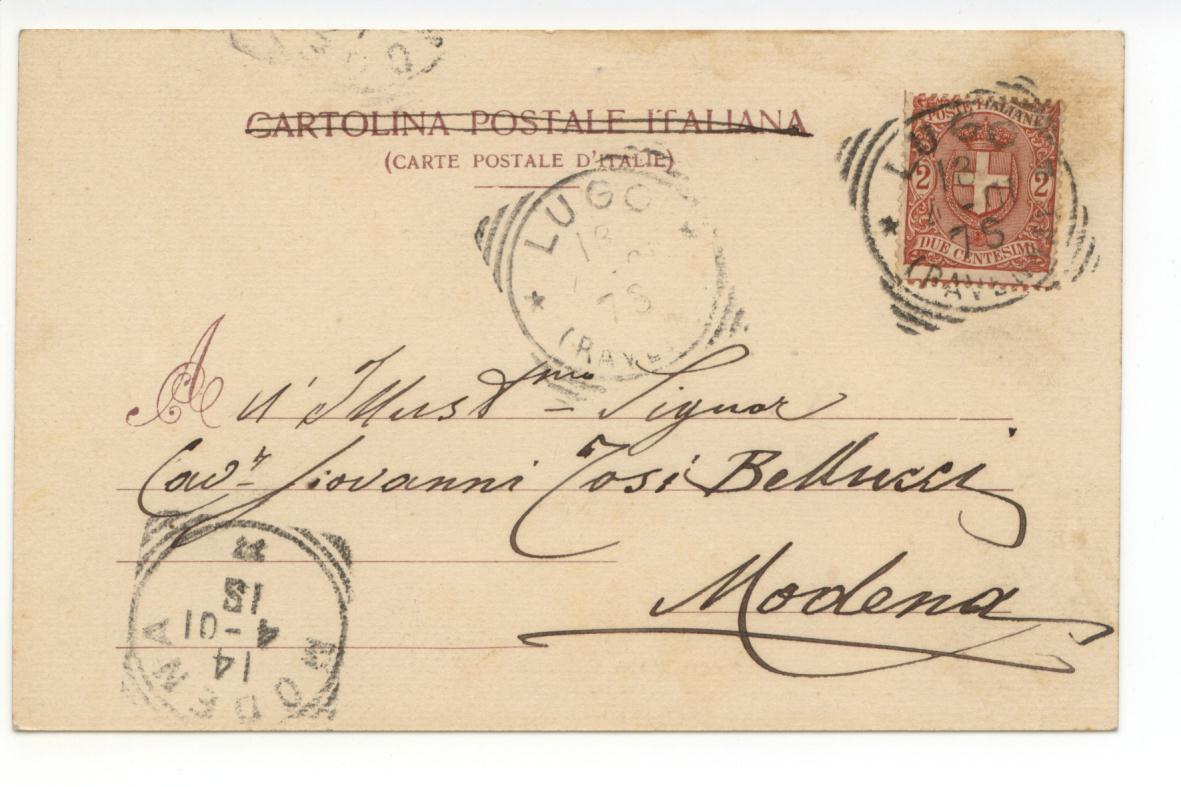 CARTOLINA POSTALE ITALIANA
(CARTE POSTALE D'ITALIE)
POSTE ITALIANE
2 2
DUE CENTESIMI
LUGO
13
7S
(RAVEN
LUGO
13
7S
(RAVE
All' Illustmo Signor
Cavr Giovanni Tosi Bellucci
Modena
MODENA
14
4-01
1S